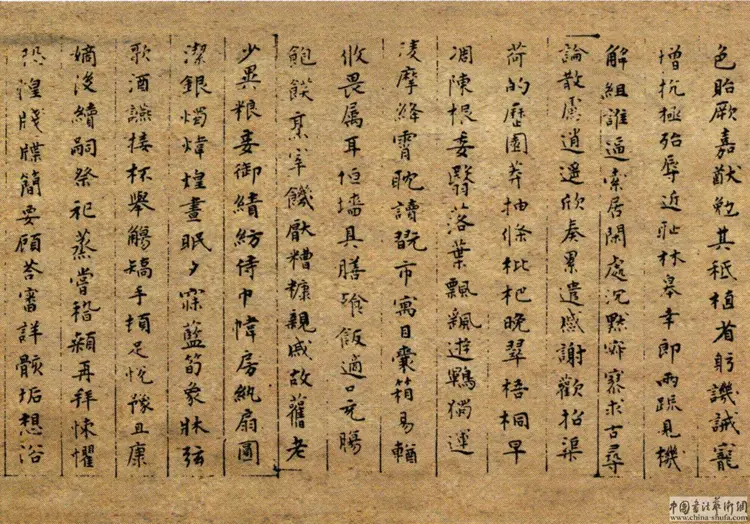 色貽厥嘉猷勉其祗植省躬譏誡寵
增抗極殆辱近耻林皋幸即兩疏見機
解組誰逼索居閑處沉默寂寥求古尋
論散慮逍遥欣奏累遣慼謝歡招渠
荷的歷園莽抽條枇杷晚翠梧桐早
凋陳根委翳落葉飄颻遊鵾獨運
淩摩絳霄耽讀翫市寓目囊箱易輶
攸畏属耳垣墻具膳飡飯適口充腸
飽飫烹宰饑厭糟糠親戚故舊老
少異粮妾御績紡侍巾帷房紈扇圓
潔銀燭煒煌晝眠夕寐藍笋象牀弦
歌酒讌接杯舉觴矯手頓足悅豫且康
嫡後續嗣祭祀蒸嘗稽顙再拜悚懼
恐惶牋牒簡要顧荅審詳骸垢想浴
中国书法艺术网
www.china-shufa.com